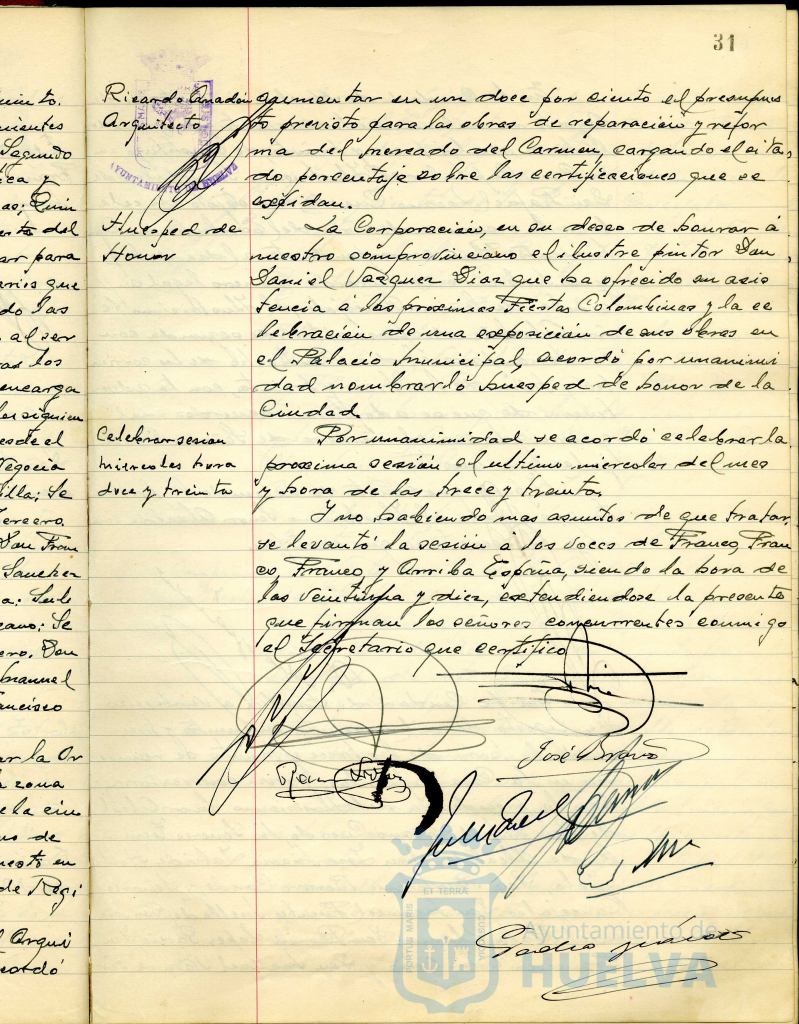 31
uinto.
nientes
Segundo
ica y
as; Quin
erto del
ar para
arios que
do las
al ser
ras los
encarga
los siguien
esde el
Negocia
illa; Se
Tercero.
Don Fran
Sanchez
a; Se le
cano; Se
ero. Don
Manuel
ancisco
ar la Or
zona
e la ciu
uesto en
de Regi
l Arqui
cordó
Ricardo Anadón
Arquitecto
AYUNTAMIENTO DE HUELVA
aumentar en un doce por ciento el presupues
to previsto para las obras de reparación y refor
ma del Mercado del Carmen, cargando el cita
do porcentaje sobre las certificaciones que se
expidan.
Huesped de
Honor
La Corporación, en su deseo de honrar á
nuestro comprovinciano el ilustre pintor Don
Daniel Vazquez Diaz que ha ofrecido su asis
tencia á las proximas Fiestas Colombinas y la ce
lebración de una exposición de sus obras en
el Palacio Municipal, acordó por unanimi
dad nombrarlo huesped de honor de la
Ciudad.
Celebrar sesion
miercoles hora
doce y treinta
Por unanimidad se acordó celebrar la
proxima sesión el ultimo miercoles del mes
y hora de las trece y treinta.
Y no habiendo mas asuntos de que tratar,
se levantó la sesión á las voces de Franco, Fran
co, Franco, y Arriba España, siendo la hora de
las veintiuna y diez, extendiendose la presente
que firman los señores concurrentes conmigo
el Secretario que certifico
José Bravo
ET TERRÆ
PORTUS MARIS
CUSTODIA
Ayuntamiento de
HUELVA